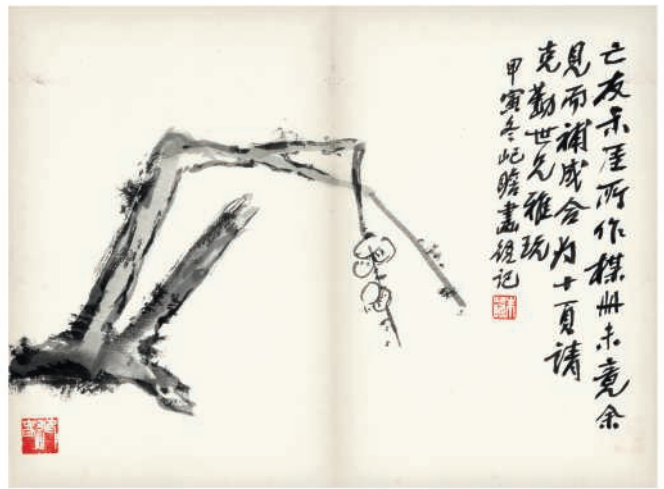 亡友禾厓所作楳册未竟余
見而補成合为十頁請
克勤世兄雅玩
甲寅冬屺瞻畫竝记